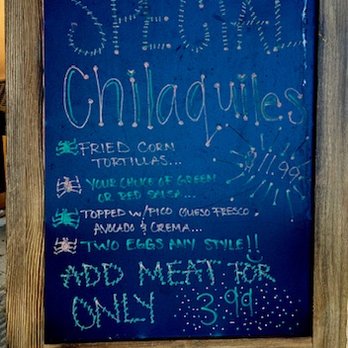 SPECIAL
Chilaquiles
FRIED CORN
TORTILLAS...
$11.99
YOUR CHOICE OF GREEN
OR RED SALSA...
TOPPED W/PICO QUESO FRESCO,
AVOCADO & CREMA...
TWO EGGS ANY STYLE!!
ADD MEAT FOR
ONLY 3.99